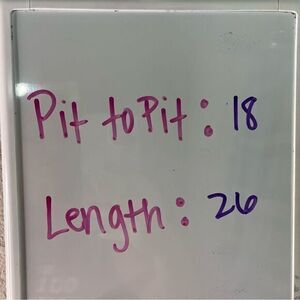 Pit to Pit: 18
Length: 26